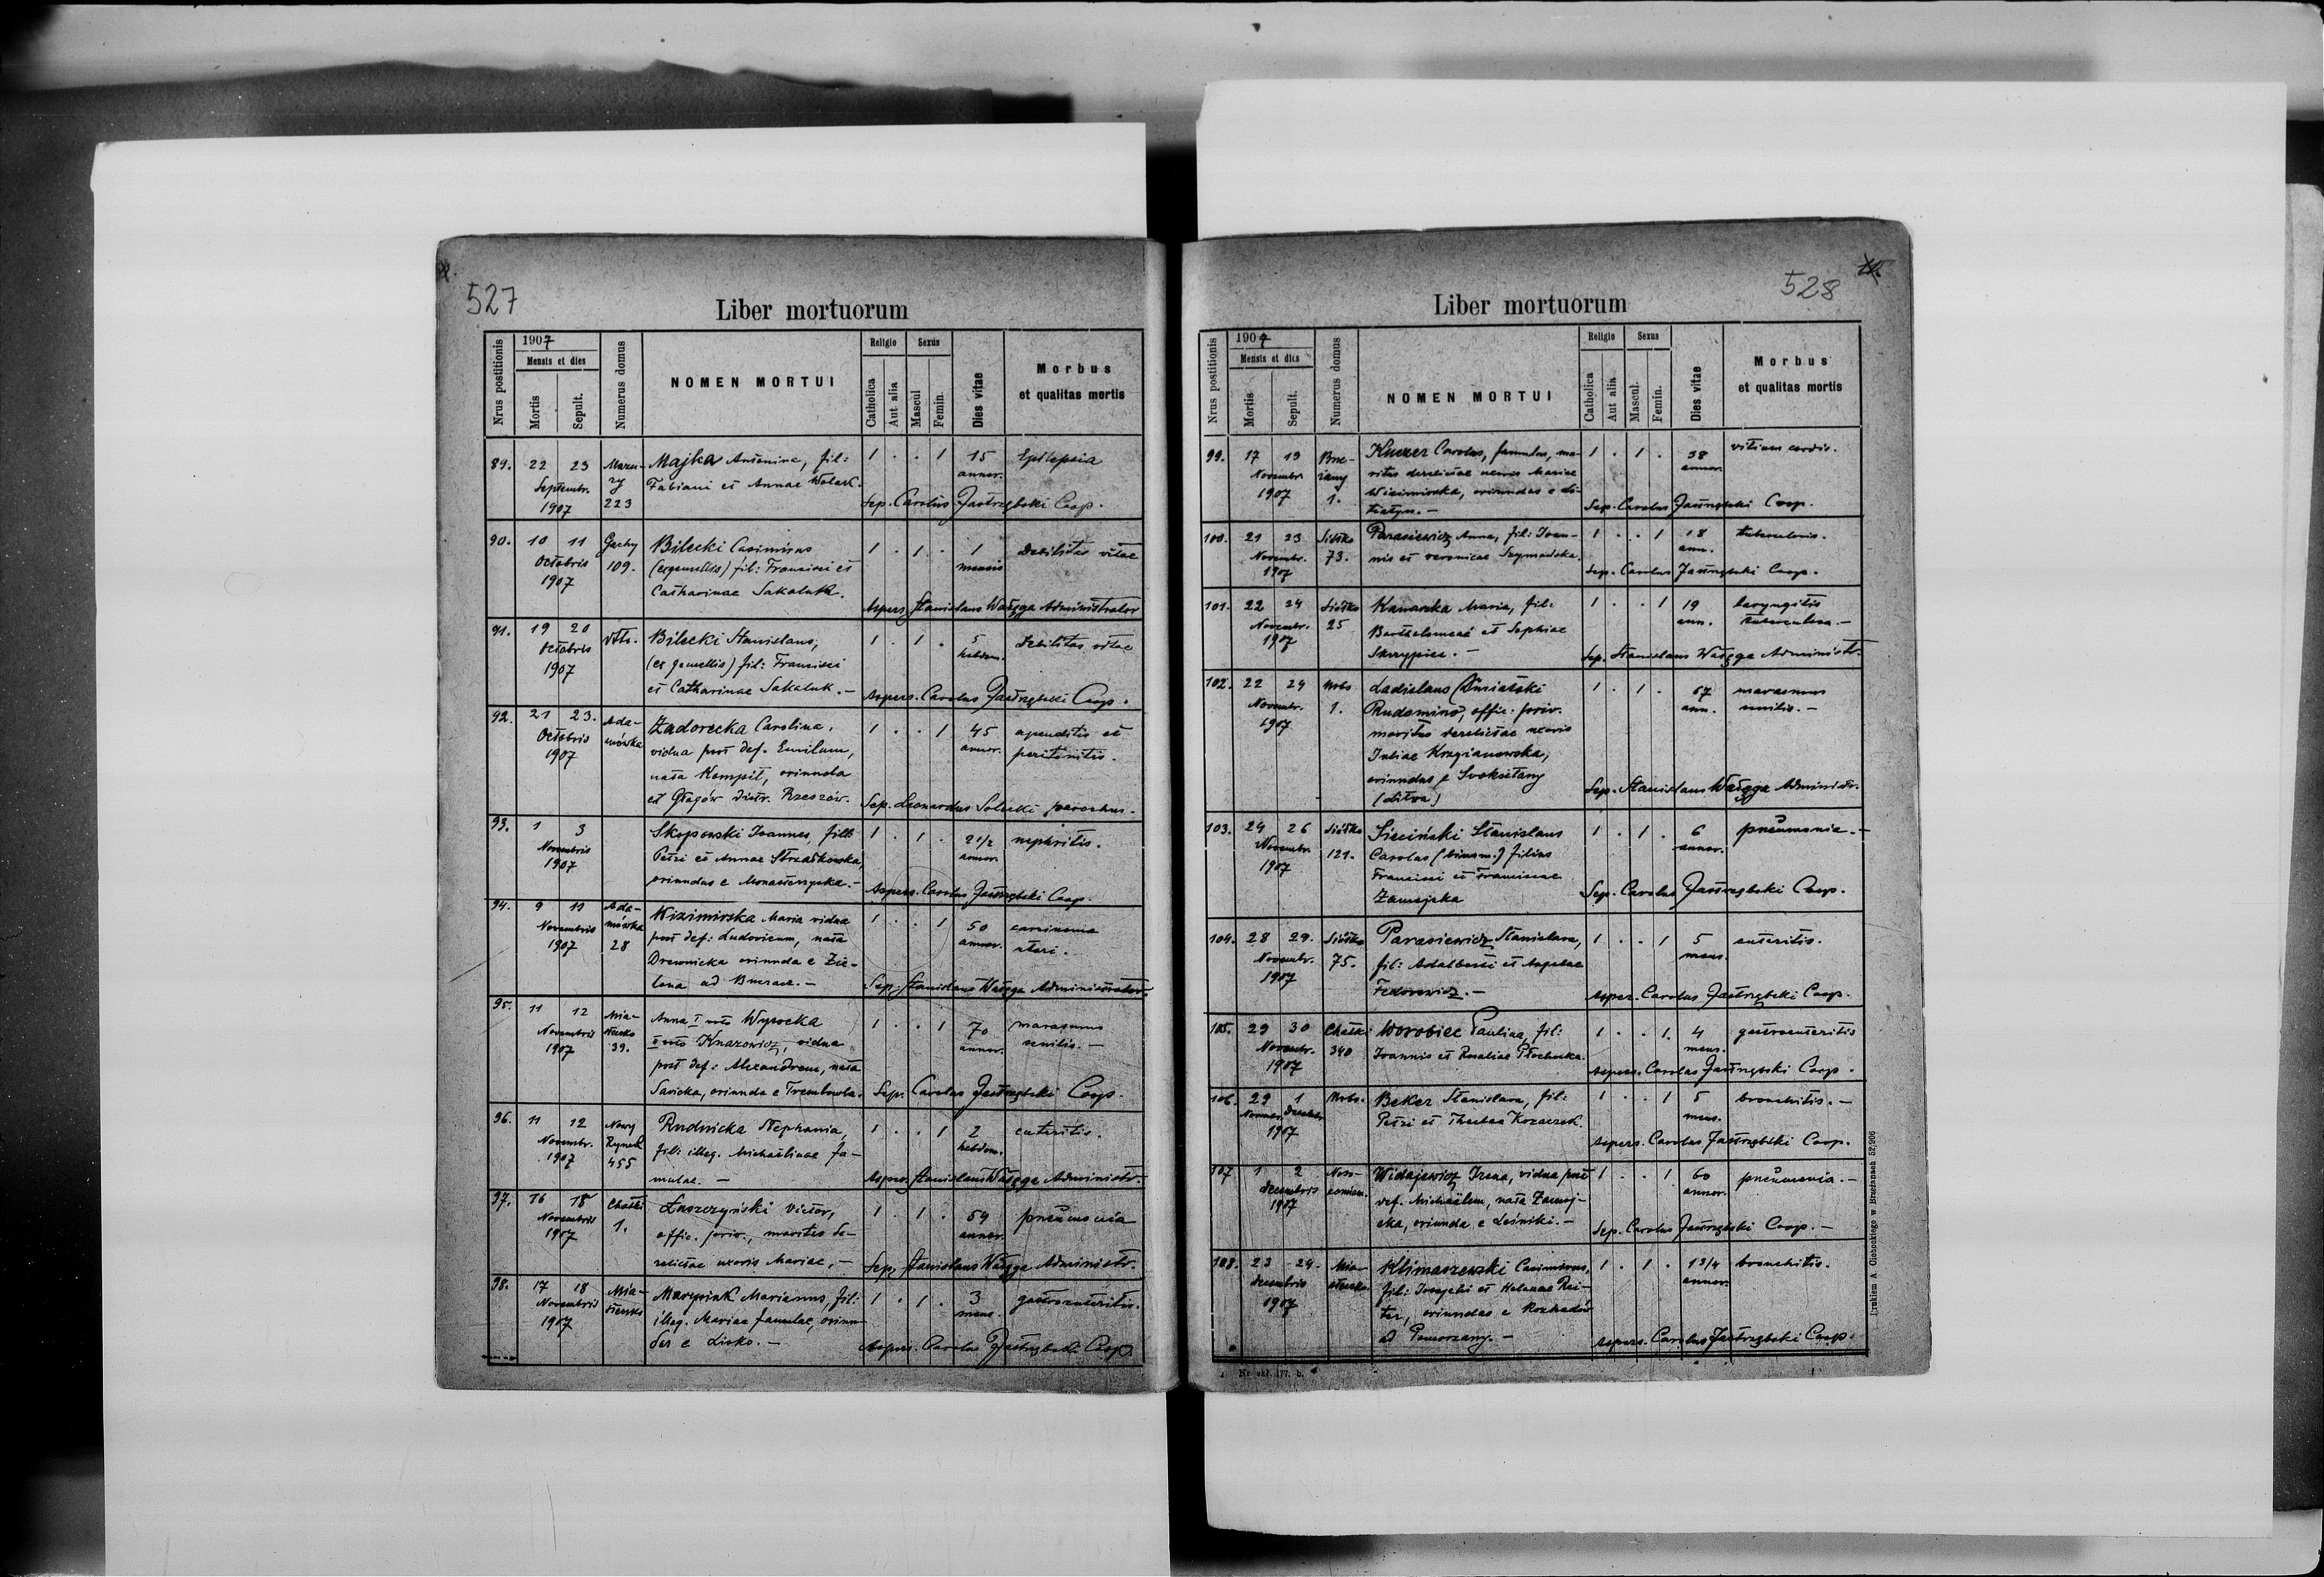 527
Liber mortuorum
Nrus postitionis
1907
Mensis et dies
Mortis
Sepult.
Numerus domus
NOMEN MORTUI
Religio
Catholica
Aut alia
Sexus
Mascul
Femin.
Dies vitae
Morbus
et qualitas mortis
89. 22 23 Mazu- Majka Antonina, fil: 1 . . 1 15 Epilepsia
Septembr. ry Fabiani et Annae annor.
1907 223 Sep. Carolus Jastrzębski Coop.
90. 10 11 Bilecki Casimirus 1 . 1 . 1 Debilitas vitae
Octobris 109. (ex gemellis) fil: Francisci et mensis
1907 Catharinae Sakaluk.
Aspers. Stanislaus Wałęga Administrator
91. 19 20 Bilecki Stanislaus, 1 . 1 . 5 Debilitas vitae
Octobris (ex gemellis) fil: Francisci hebdom.
1907 et Catharinae Sakaluk. –
Aspers. Carolus Jastrzębski Coop.
92. 21 23. Ada- Zadorecka Carolina, 1 . . 1 45 et
Octobris mówka vidua post def. annor. peritonitis.
1907 nata Kompit, oriunda
Głogów distr. Rzeszów. Sep. Leonardus Solecki parochus.
93. 1 3 Skoposki Joannes, 1 . 1 . 2 1/2 nephritis.
Novembris Petri et Annae annor.
1907 oriundus e Monasterzyska. –
Aspers. Carolus Jastrzębski Coop.
94. 9 11 Ada- Wizimirska Maria vidua 1 . . 1 50 carcinoma
Novembris mówka post def: Ludovicum, nata annor. uteri.
1907 28 Drewnicka oriunda e Zie-
lona ad Buczacz. – Sep. Stanislaus Wałęga Administrator.
95. 11 12 Mia- Anna I voto Wysocka 1 . . 1 70 marasmus
Novembris steczko II voto vidua annor. senilis. –
1907 39. post def: Alexandrum, nata
Savicka, oriunda e Trembowla. Sep. Carolus Jastrzębski Coop.
96. 11 12 Nowy Rudnicka Stephania, 1 . . 1 2 enteritis.
Novembr. Rynek fil: illeg. Michaëlinae fa- hebdom.
1907 455 mulae. – Aspers. Stanislaus Wałęga Administr.
97. 16 18 Chatki Łaszczyński Victor, 1 . 1 . 54 pneumonia
Novembris 1. offic. priv., maritus de- annor.
1907 relictae uxoris Mariae, – Sep. Stanislaus Wałęga Administr.
98. 17 18 Mia- Marianus, fil: 1 . 1 . 3 gastroenteritis.
Novembris steczko illeg. Mariae famulae, oriun- mens.
1907 e Lisko. – Aspers. Carolus Jastrzębski Coop.
528
Liber mortuorum
Nrus postitionis
1907
Mensis et dies
Mortis
Sepult.
Numerus domus
NOMEN MORTUI
Religio
Catholica
Aut alia
Sexus
Mascul.
Femin.
Dies vitae
Morbus
et qualitas mortis
99. 17 19 Brze- Carolus, famulus, ma- 1 . 1 . 38 vitium cordis.
Novembr. żany ritus derelictae uxoris Mariae annor.
1907 1. oriundus e Li-
Sep. Carolus Jastrzębski Coop.
100. 21 23 Siółko Parasiewicz Anna, fil: Joan- 1 . . 1 18 tuberculosis.
Novembr. 73. nis et Veronicae Szymańska. ann.
1907 Sep. Carolus Jastrzębski Coop.
101. 22 24 Siółko Maria, fil: 1 . . 1 19 laryngitis
Novembr. 25 Bartholomaei et Sophiae ann. tuberculosa. –
1907 . – Sep. Stanislaus Wałęga Administr.
102. 22 24 Urbs Ladislaus 1 . 1 . 67 marasmus
Novembr. 1. Rudomino, offic. priv. ann. senilis. –
1907 maritus derelictae uxoris
Juliae Krzyżanowska,
oriundus e
(Litva) Sep. Stanislaus Wałęga Administr.
103. 24 26 Siółko Sieciński Stanislaus 1 . 1 . 6 pneumonia. –
Novembr. 121. Carolus (binom.) filius annor.
1907 Francisci et Franciscae
Zamojska Sep. Carolus Jastrzębski Coop.
104. 28 29. Siółko Parasiewicz Stanislava, 1 . . 1 5 enteritis.
Novembr. 75. fil: Adalberti et Angelae mens.
1907 Fedorowicz. – Aspers. Carolus Jastrzębski Coop.
105. 29 30 Chatki Worobiec Paulina, fil: 1 . . 1. 4 gastroenteritis
Novembr. 340 Joannis et Rosaliae mens.
1907 Aspers. Carolus Jastrzębski Coop.
106. 29 1 Urbs. Beker Stanislava, fil: 1 . . 1 5 bronchitis. –
Novembr. Decembr. Petri et Theclae Kozaczek. mens.
1907 Aspers. Carolus Jastrzębski Coop.
107 1 2 Noso- Widajewicz Irena, vidua post 1 . . 1 60 pneumonia. –
Decembris comium. def. Michaëlem, nata Zamoj- annor.
1907 ska, oriunda e Leśniki. – Sep. Carolus Jastrzębski Coop. –
108. 23 24. Mia- Klimaszewski Casimirus, 1 . 1 . 1 3/4 bronchitis.
Decembris steczko. fil: Josephi et Helenae Rei- annor.
1907 ter, oriundus e Rozhadów
ad Pomorzany. – Aspers. Carolus Jastrzębski Coop.
Drukiem A. Cichockiego w Brzeżanach 52,906